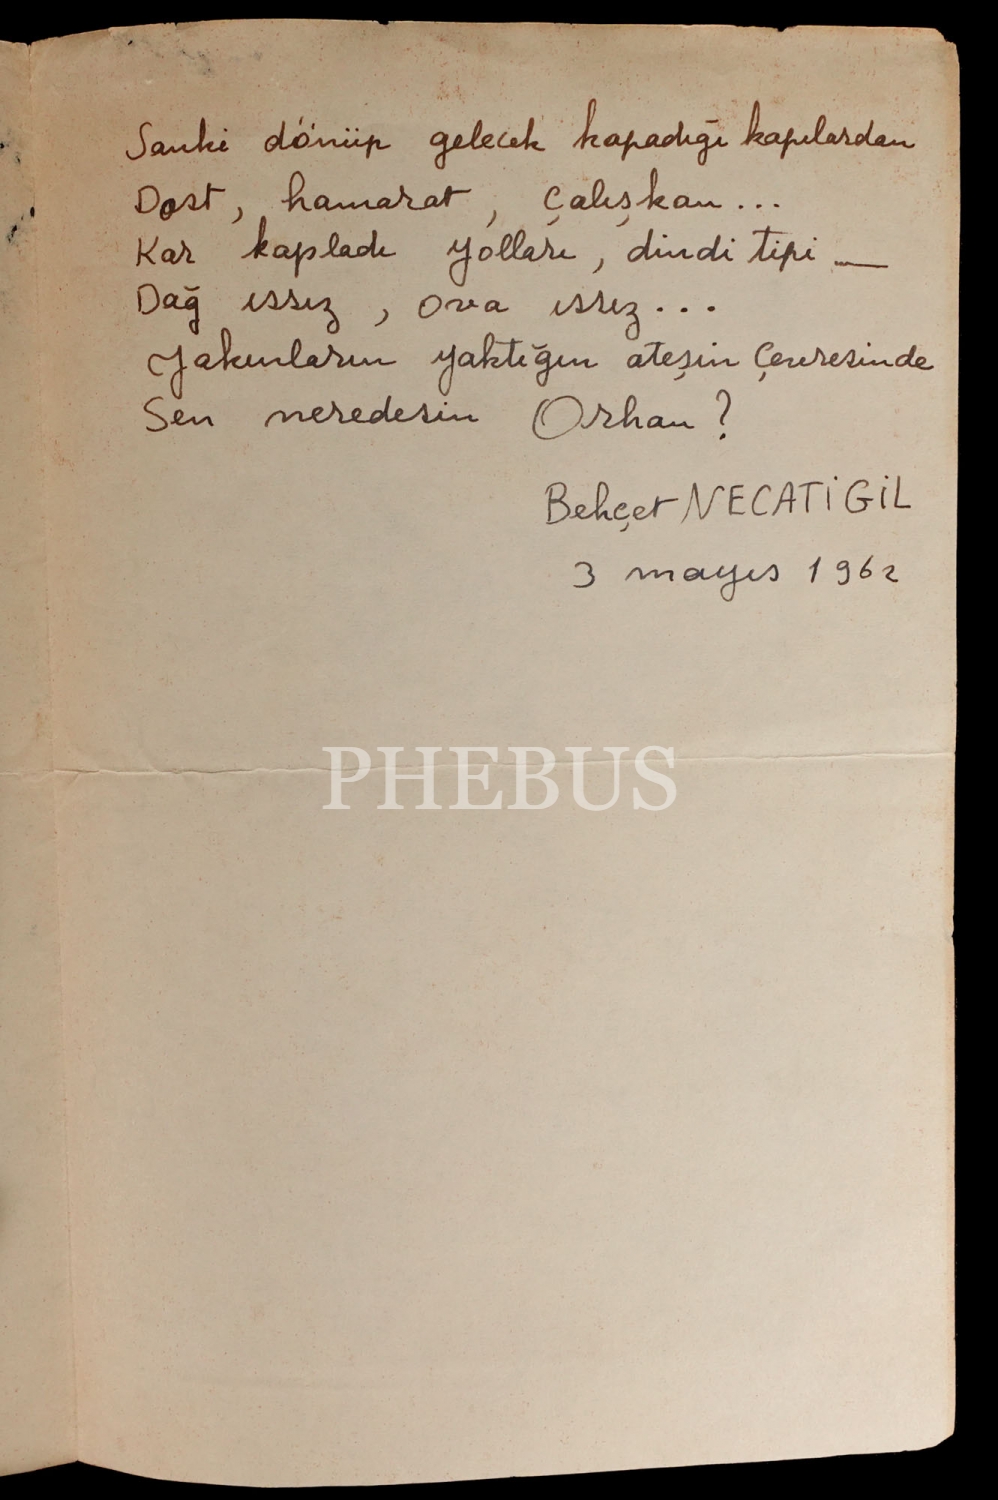 Sanki dönüp gelecek kapadığı kapılardan
Dost, hamarat, çalışkan...
Kar kapladı yolları, dindi tipi __
Dağ ıssız, ova ıssız...
Yakınların yaktığın ateşin çevresinde
Sen neredesin Orhan?
Behçet NECATİGİL
3 mayıs 1962
PHEBUS